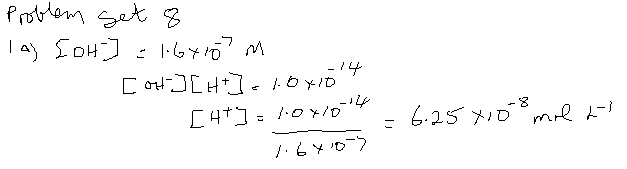 Problem set 8
1a) [OH⁻] = 1.6 x 10⁻⁷ M
[OH⁻][H⁺] = 1.0 x 10⁻¹⁴
[H⁺] = 1.0 x 10⁻¹⁴ / 1.6 x 10⁻⁷ = 6.25 x 10⁻⁸ mol L⁻¹